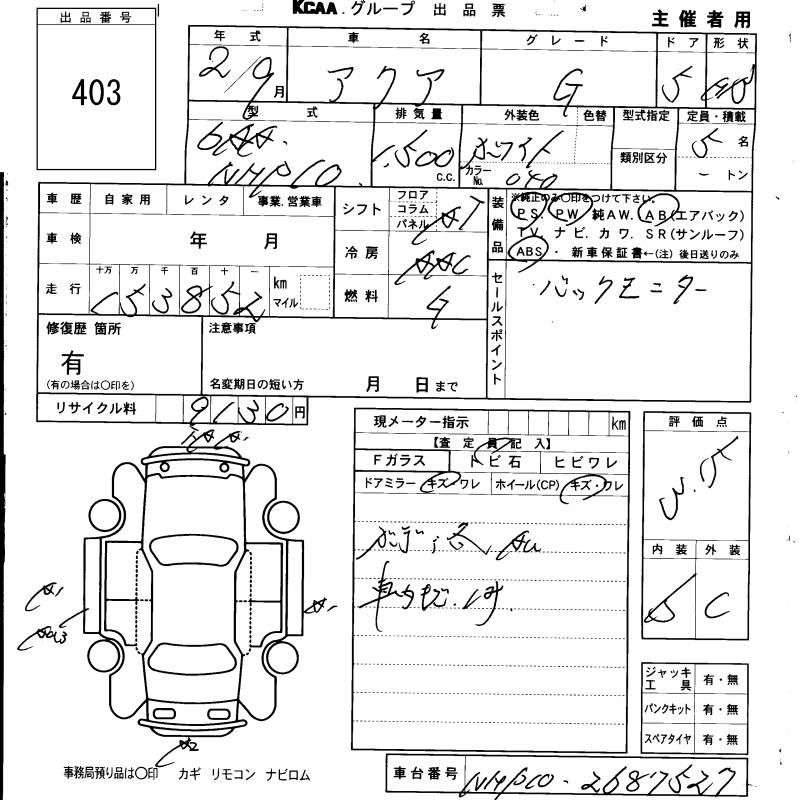 KCAA グループ 出品票
主催者用
出品番号
403
年式 車名 グレード ドア 形状
2/9月 アクア G 5 HB
型式 排気量 外装色 色替 型式指定 定員・積載
6AA- 1,500 c.c. ホワイト 類別区分 5 名
NHP10 カラーNo. 040 - トン
車歴 自家用 レンタ 事業.営業車
車検 年 月
走行 十万 万 千 百 十 一
153852 km マイル
シフト フロア コラム パネル AT
冷房 AAC
燃料 G
装備品
※純正のみ〇印をつけて下さい。
PS. PW 純AW. AB(エアバック)
TV. ナビ. カワ. SR(サンルーフ)
ABS ・ 新車保証書←(注) 後日送りのみ
セールスポイント
バックモニター
修復歴 箇所
有
(有の場合は〇印を)
注意事項
名変期日の短い方 月 日まで
リサイクル料 9130円
現メーター指示 km
【査定員記入】
Fガラス トビ石 ヒビワレ
ドアミラー キズ・ワレ ホイール(CP) キズ・ワレ
ボディ
評価点
3.5
内装 外装
C
A1
A2
ジャッキ工具 有・無
パンクキット 有・無
スペアタイヤ 有・無
事務局預り品は〇印 カギ リモコン ナビロム
車台番号 NHP10-2687527